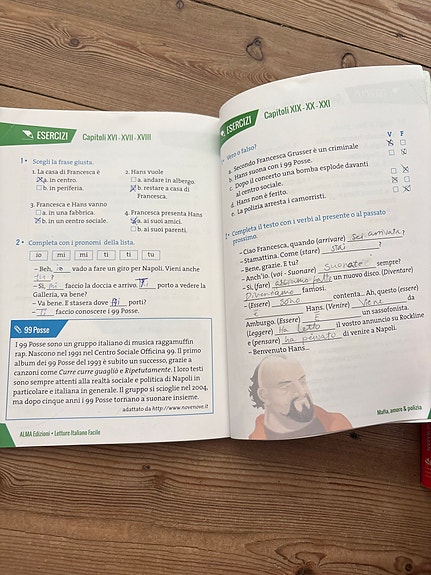 ESERCIZI Capitoli XVI - XVII - XVIII
1 • Scegli la frase giusta.
1. La casa di Francesca è
a. in centro.
b. in periferia.
2. Hans vuole
a. andare in albergo.
b. restare a casa di
Francesca.
3. Francesca e Hans vanno
a. in una fabbrica.
b. in un centro sociale.
4. Francesca presenta Hans
a. ai suoi amici.
b. ai suoi parenti.
2 • Completa con i pronomi della lista.
io mi mi ti ti tu
– Beh, io vado a fare un giro per Napoli. Vieni anche
tu?
– Sì, mi faccio la doccia e arrivo. Ti porto a vedere la
Galleria, va bene?
– Va bene. E stasera dove porti?
– Ti faccio conoscere i 99 Posse.
99 Posse
I 99 Posse sono un gruppo italiano di musica raggamuffin
rap. Nascono nel 1991 nel Centro Sociale Officina 99. Il primo
album dei 99 Posse del 1993 è subito un successo, grazie a
canzoni come Curre curre guagliò e Ripetutamente. I loro testi
sono sempre attenti alla realtà sociale e politica di Napoli in
particolare e italiana in generale. Il gruppo si scioglie nel 2004,
ma dopo cinque anni i 99 Posse tornano a suonare insieme.
adattato da http://www.novenove.it
ALMA Edizioni • Letture Italiano Facile
ESERCIZI Capitoli XIX - XX - XXI
Vero o falso? V F
a. Secondo Francesca Grusser è un criminale
b. Hans suona con i 99 Posse.
c. Dopo il concerto una bomba esplode davanti
al centro sociale.
d. Hans non è ferito.
e. La polizia arresta i camorristi.
Completa il testo con i verbi al presente o al passato
prossimo.
– Ciao Francesca, quando (arrivare) sei arrivata?
– Stamattina. Come (stare) stai ?
– Bene, grazie. E tu?
– Anch'io. (voi - Suonare) suonate sempre?
– Sì, (fare) abbiamo fatto un nuovo disco. (Diventare)
Diventiamo famosi.
– (Essere) sono contenta... Ah, questo (essere)
è Hans. (Venire) Viene da
Amburgo. (Essere) È un sassofonista.
(Leggere) Ha letto il vostro annuncio su Rockline
e (pensare) ha pensato di venire a Napoli.
– Benvenuto Hans...
Mafia, amore & polizia